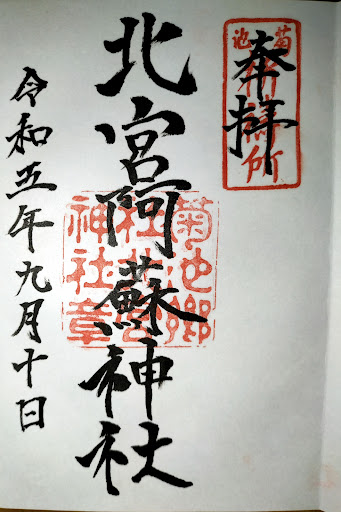 奉拝
菊池
祈祷所
北宮阿蘇神社
菊池郷
社北宮
神社章
令和五年九月十日